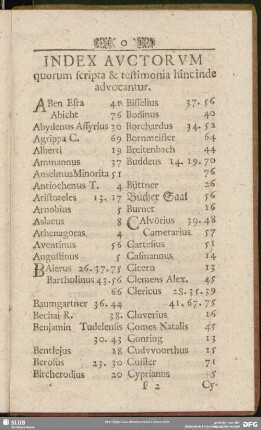 O
INDEX AVCTORVM
quorum ſcripta & teſtimonia hinc inde
advocantur.
ABen Eſra 41
Abicht 76
Abydenus Aſſyrius 30
Agrippa C. 69
Alberti 19
Ammannus 37
Anselmus Minorita 51
Antiochenus T. 4
Ariſtoteles 13. 17
Arnobius 5
Aslacus 8
Athenagoras 4
Aventinus 56
Auguſtinus 5
BAierus 26. 37. 75
Bartholinus 43. 56
66
Baumgartner 36. 44
Bechai R. 38
Benjamin Tudelenſis
30. 43
Bentlejus 18
Beroſus 23. 30
Bircherodius 20
Biſſelius 37. 56
Bodinus 40
Borchardus 34. 52
Bornmeiſter 64
Breitenbach 44
Buddeus 14. 19. 70
76
Büttner 26
Bücher Saal 56
Burnet 16
CAlvörius 39. 48
Camerarius 57
Carteſius 51
Caſmannus 14
Cicero 13
Clemens Alex. 45
Clericus 28. 35. 39
41. 67. 75
Cluverius 16
Comes Natalis 45
Conring 13
Cudvvoorthus 15
Cuſſler 71
Cyprianus 15
F 2
Cy-
SLUB
DFG